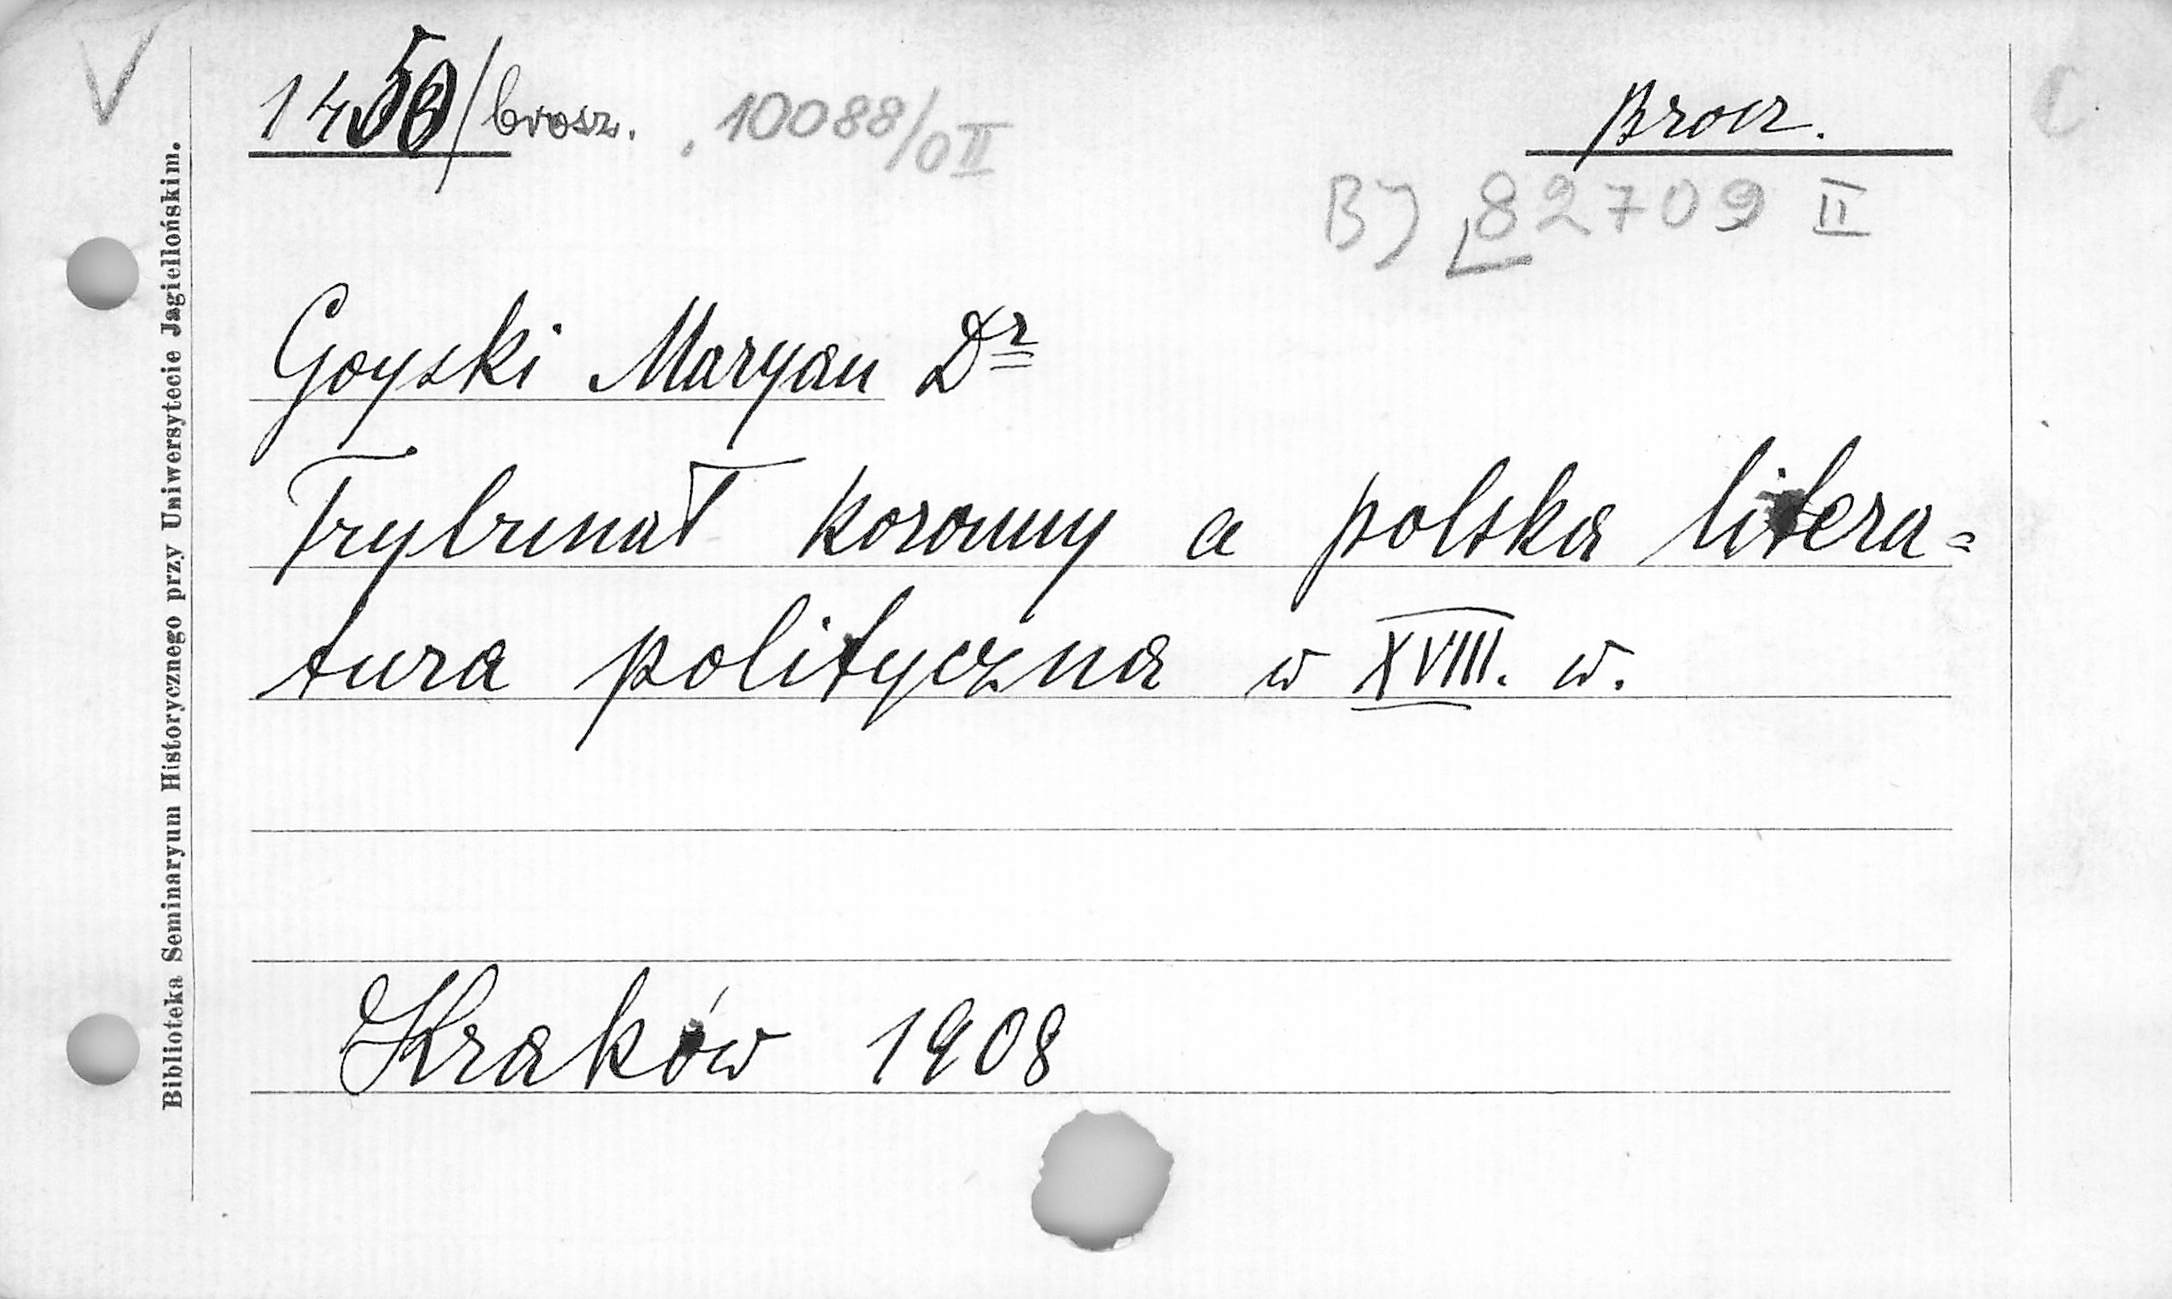 V
1450/brosz. 10088/OII
Brosz.
B) 82709 II
Goyski Maryan Dr
Trybunał koronny a polska litera=
tura polityczna w XVIII. w.
Kraków 1908
Biblioteka Seminaryum Historycznego przy Uniwersytecie Jagiellońskim.